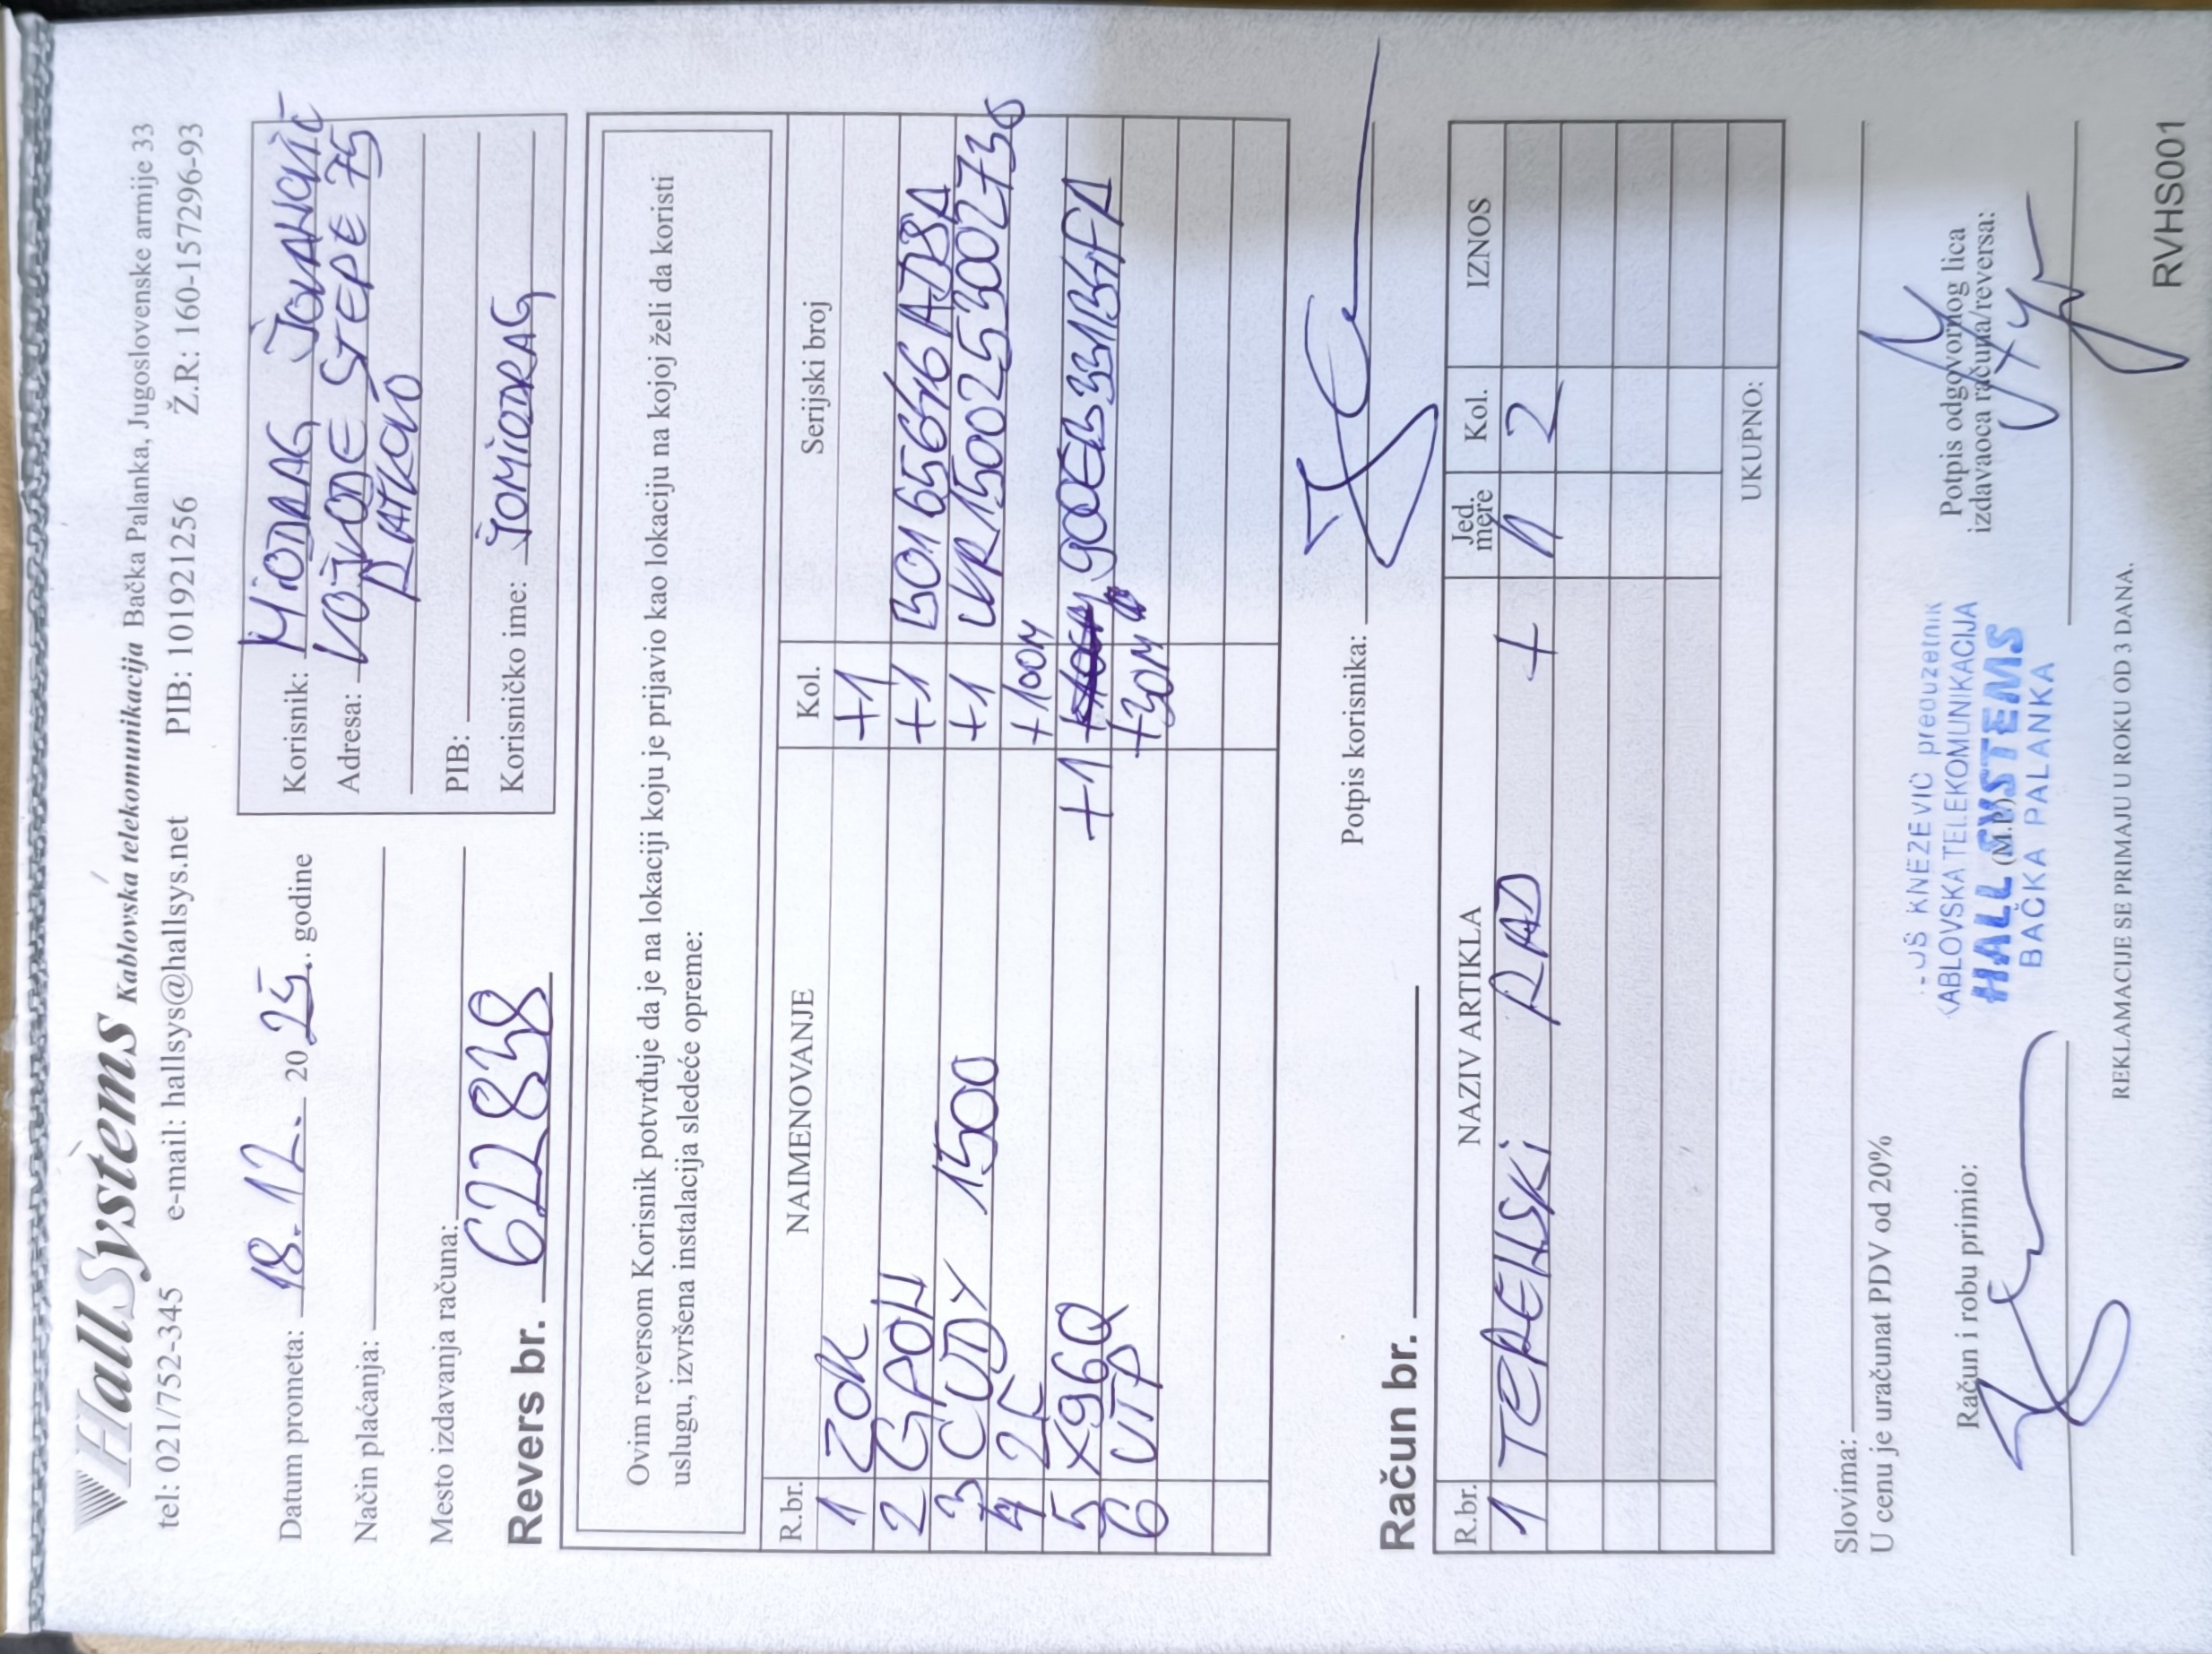 HallSystems Kablovska telekomunikacija Bačka Palanka, Jugoslovenske armije 33
tel: 021/752-345 e-mail: hallsys@hallsys.net PIB: 101921256 Ž.R.: 160-157296-93
Datum prometa: 18.12. 2025. godine
Način plaćanja:
Mesto izdavanja računa:
Revers br. 622838
Korisnik: MIODRAG JOVANOVIĆ
Adresa: VOJVODE STEPE 75
RATKOVO
PIB:
Korisničko ime: JOMIODRAG
Ovim reversom Korisnik potvrđuje da je na lokaciji koju je prijavio kao lokaciju na kojoj želi da koristi
uslugu, izvršena instalacija sledeće opreme:
R.br. NAIMENOVANJE Kol. Serijski broj
1 ZOK +1
2 GPON +1
3 CUDY 1500 +1
4 2F +100M
5 X96Q +1
6 UTP +30M
Potpis korisnika:
Račun br.
R.br. NAZIV ARTIKLA Jed. mere Kol. IZNOS
1 TERENSKI RAD + 2
UKUPNO:
Slovima:
U cenu je uračunat PDV od 20%
Račun i robu primio:
KNEZEVIĆ preduzetnik
KABLOVSKA TELEKOMUNIKACIJA
HALL SYSTEMS
(M.P.)
BAČKA PALANKA
Potpis odgovornog lica
izdavaoca računa/reversa:
REKLAMACIJE SE PRIMAJU U ROKU OD 3 DANA.
RVHS001